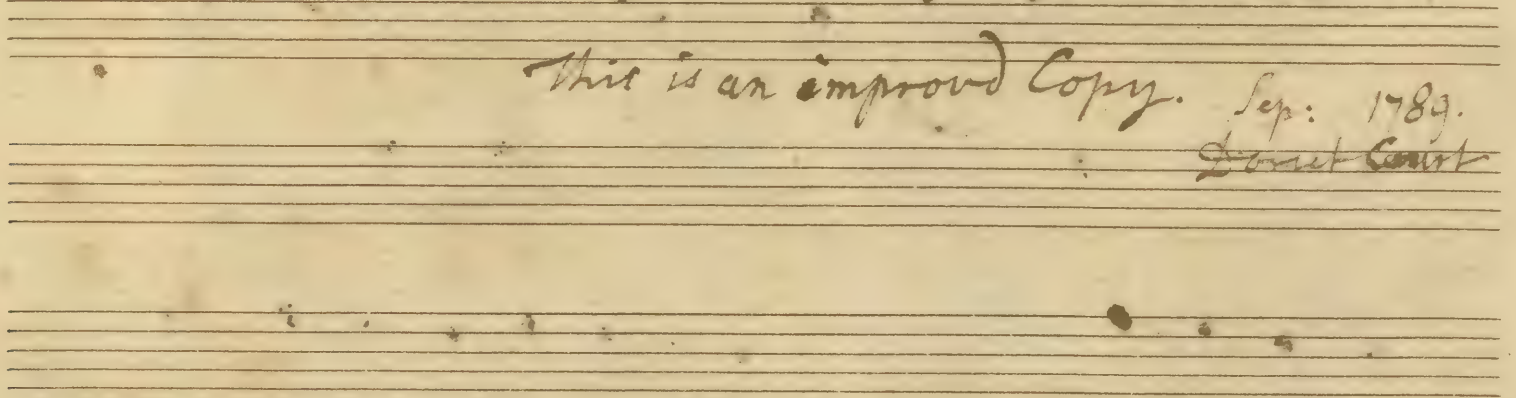 This is an improvd Copy. Sep: 1789.
Dorset Court